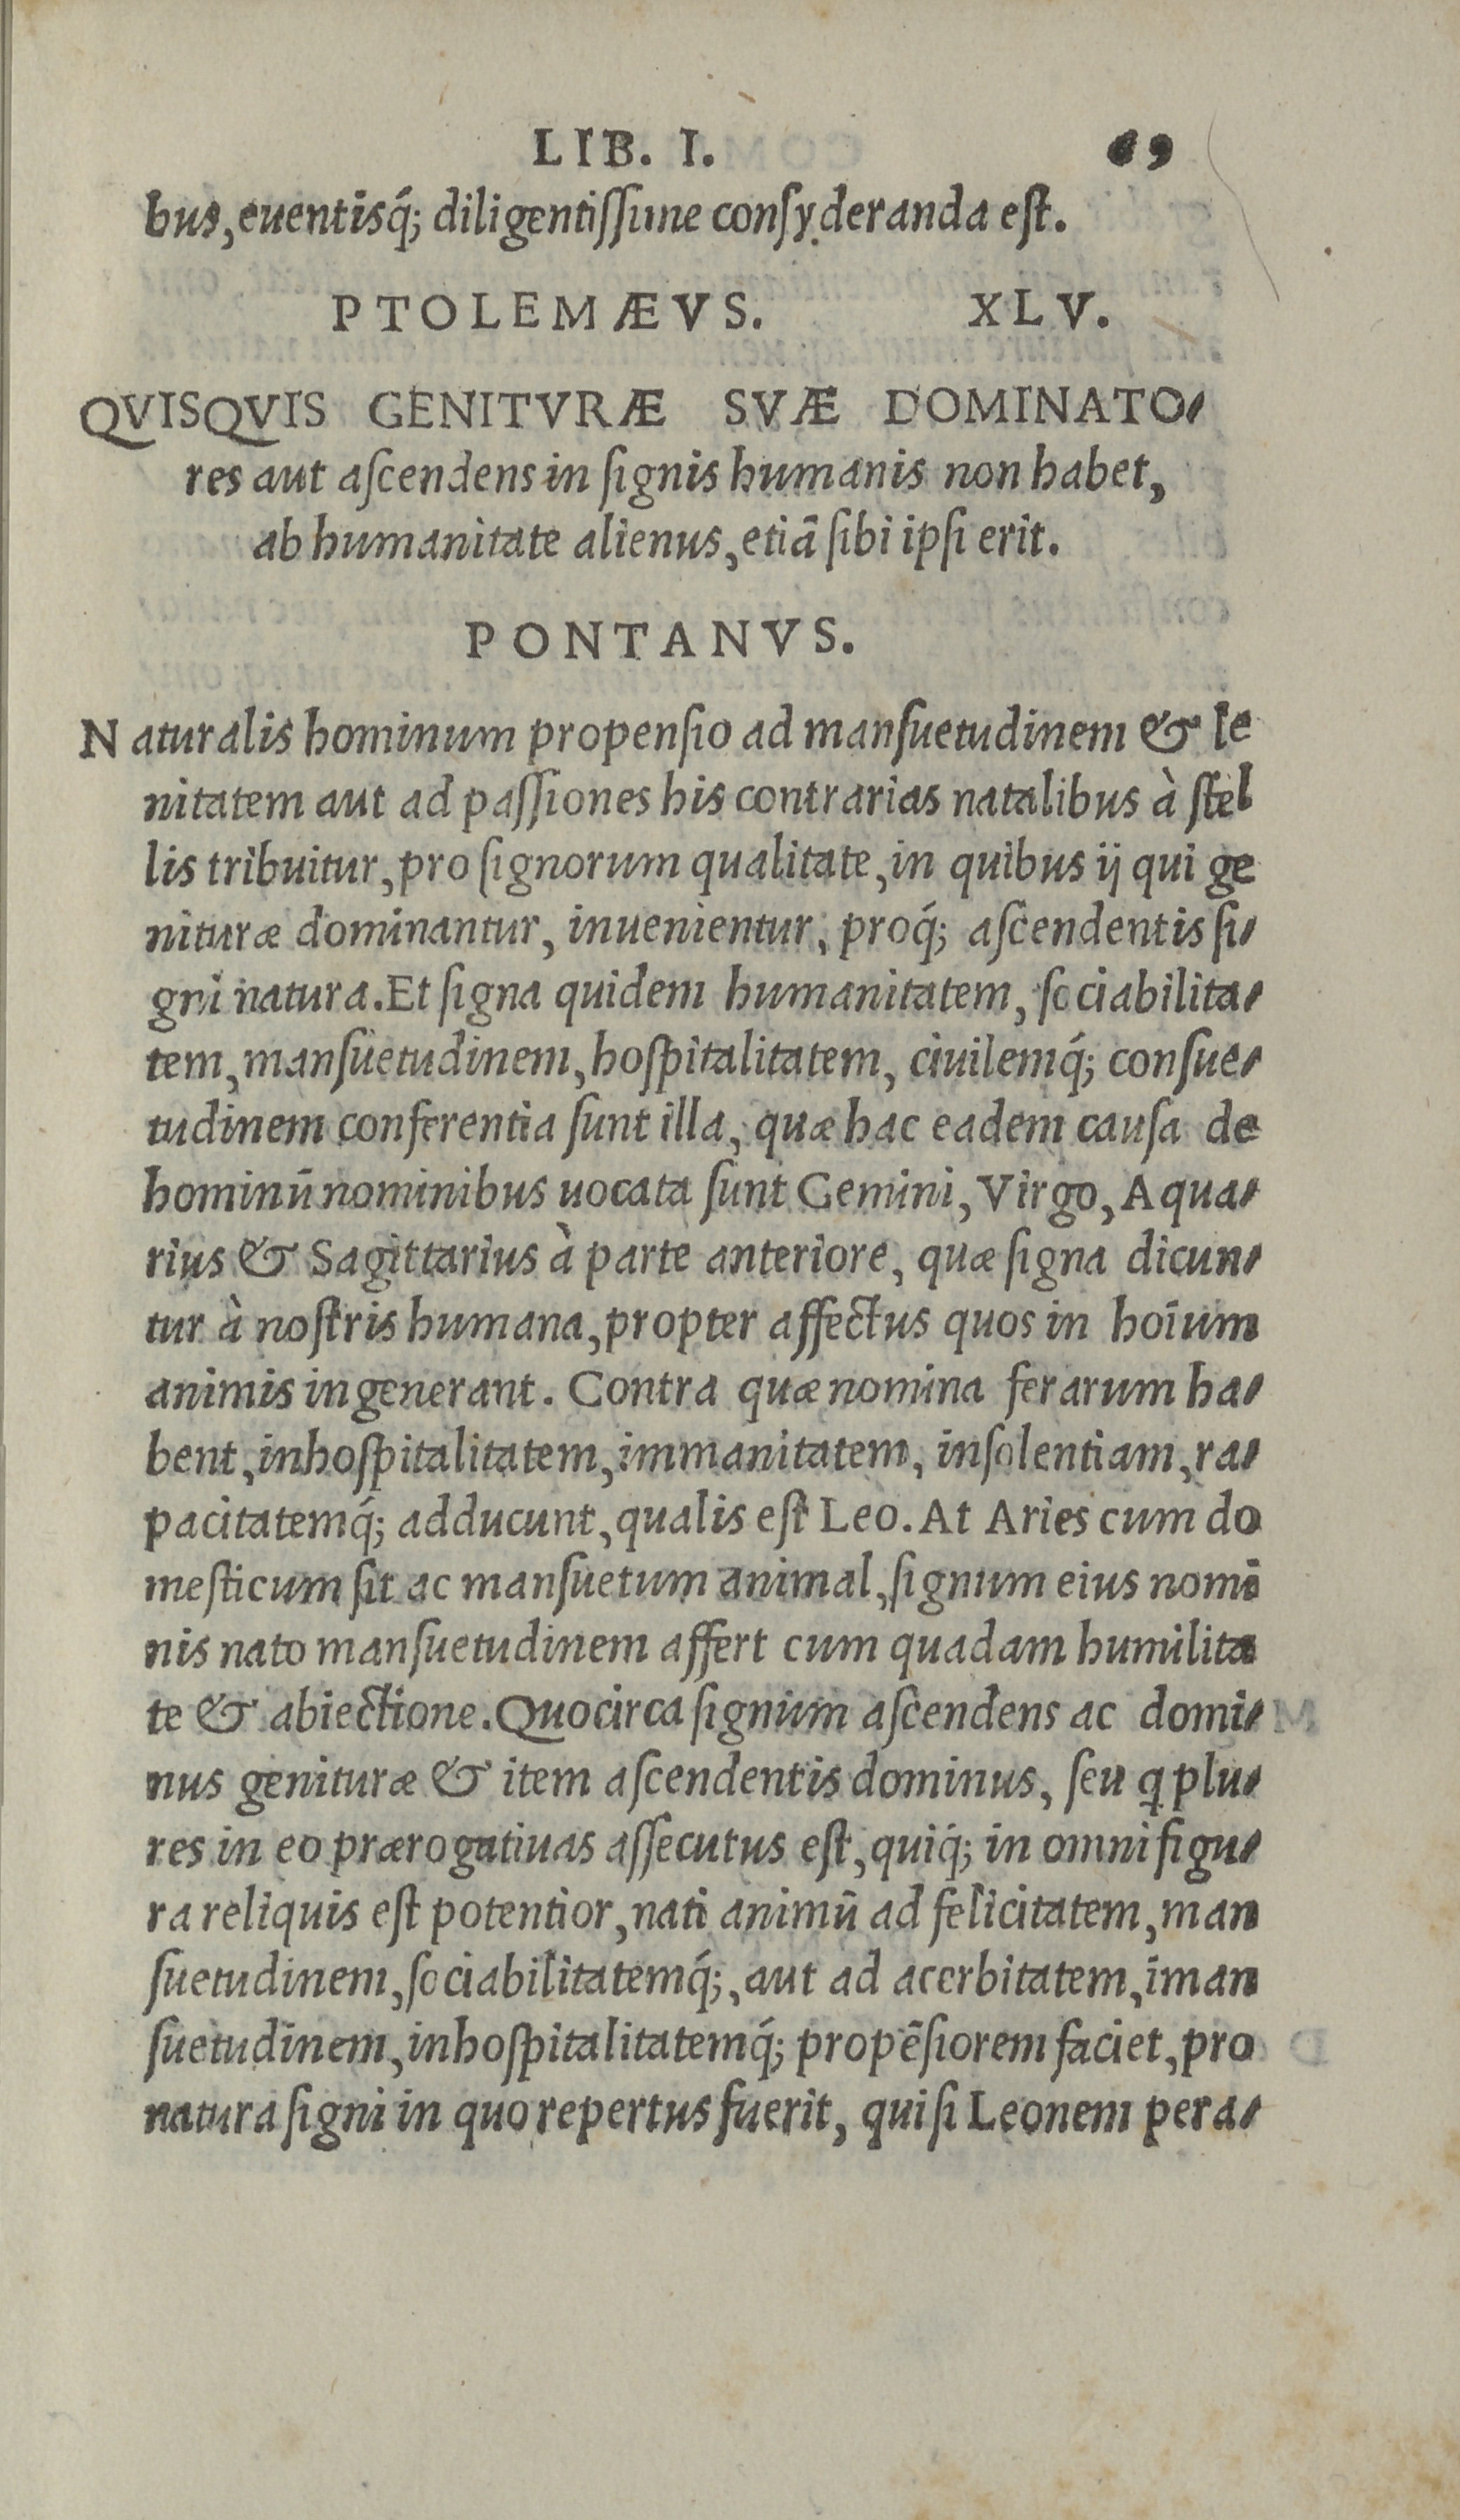 LIB. I. 69
bus, euentisq́; diligentissime consyderanda est.
PTOLEMÆVS. XLV.
QVISQVIS GENITVRÆ SVÆ DOMINATO-
res aut ascendens in signis humanis non habet,
ab humanitate alienus, etiã sibi ipsi erit.
PONTANVS.
Naturalis hominum propensio ad mansuetudinem & le
nitatem aut ad passiones his contrarias natalibus à stel
lis tribuitur, pro signorum qualitate, in quibus ij qui ge
nituræ dominantur, inuenientur, proq́; ascendentis si-
gni natura. Et signa quidem humanitatem, sociabilita-
tem, mansuetudinem, hospitalitatem, ciuilemq́; consue-
tudinem conferentia sunt illa, quæ hac eadem causa de
hominũ nominibus uocata sunt Gemini, Virgo, Aqua-
rius & Sagittarius à parte anteriore, quæ signa dicun-
tur à nostris humana, propter affectus quos in hoĩum
animis ingenerant. Contra quæ nomina ferarum ha-
bent, inhospitalitatem, immanitatem, insolentiam, ra-
pacitatemq́; adducunt, qualis est Leo. At Aries cum do
mesticum sit ac mansuetum animal, signum eius nomi
nis nato mansuetudinem affert cum quadam humilita
te & abiectione. Quocirca signum ascendens ac domi-
nus genituræ & item ascendentis dominus, seu q plu-
res in eo prærogatiuas assecutus est, quiq́; in omni figu-
ra reliquis est potentior, nati animũ ad felicitatem, man
suetudinem, sociabilitatemq́;, aut ad acerbitatem, ĩman
suetudinem, inhospitalitatemq́; propẽsiorem faciet, pro
natura signi in quo repertus fuerit, qui si Leonem pera-